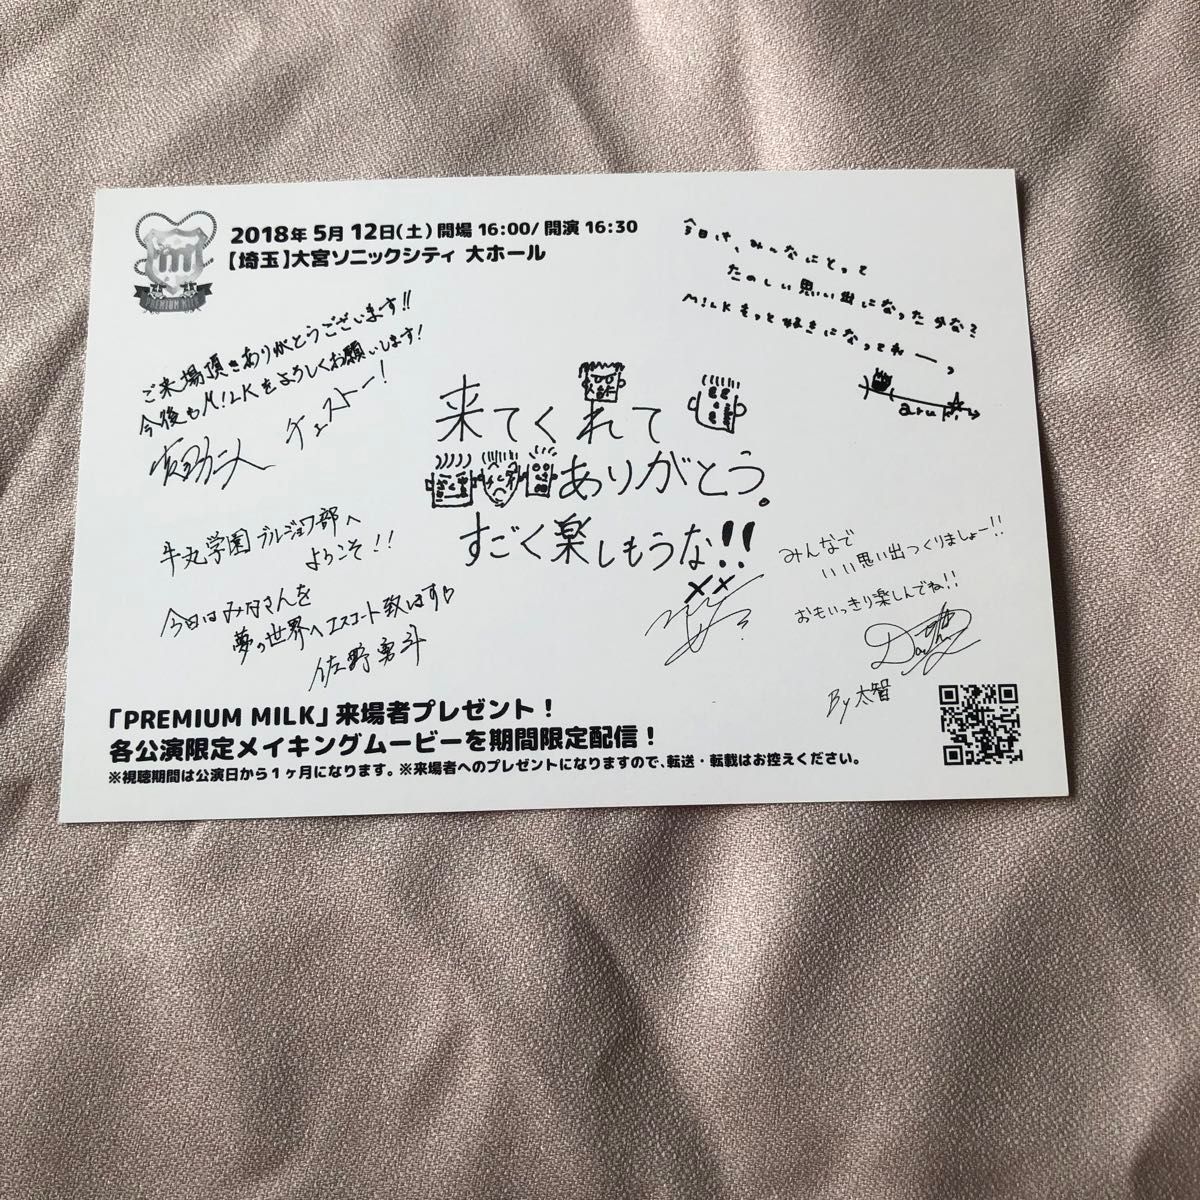 2018年 5月 12日(土) 開場 16:00/ 開演 16:30
【埼玉】大宮ソニックシティ 大ホール
m
PREMIUM MILK
ご来場頂きありがとうございます!!
今後もM!LKをよろしくお願いします!
チェストー!
今日は、みんなにとって
たのしい思い出になったかな?
M!LKもっと好きになってねーっ
来てくれて
ありがとう。
すごく楽しもうな!!
牛丸学園ブルジョワ部へ
ようこそ!!
今日はみなさんを
夢の世界へエスコート致します♡
佐野勇斗
みんなで
いい思い出つくりましょー!!
おもいっきり楽しんでね!!
By 太智
「PREMIUM MILK」来場者プレゼント!
各公演限定メイキングムービーを期間限定配信!
※視聴期間は公演日から1ヶ月になります。※来場者へのプレゼントになりますので、転送・転載はお控えください。